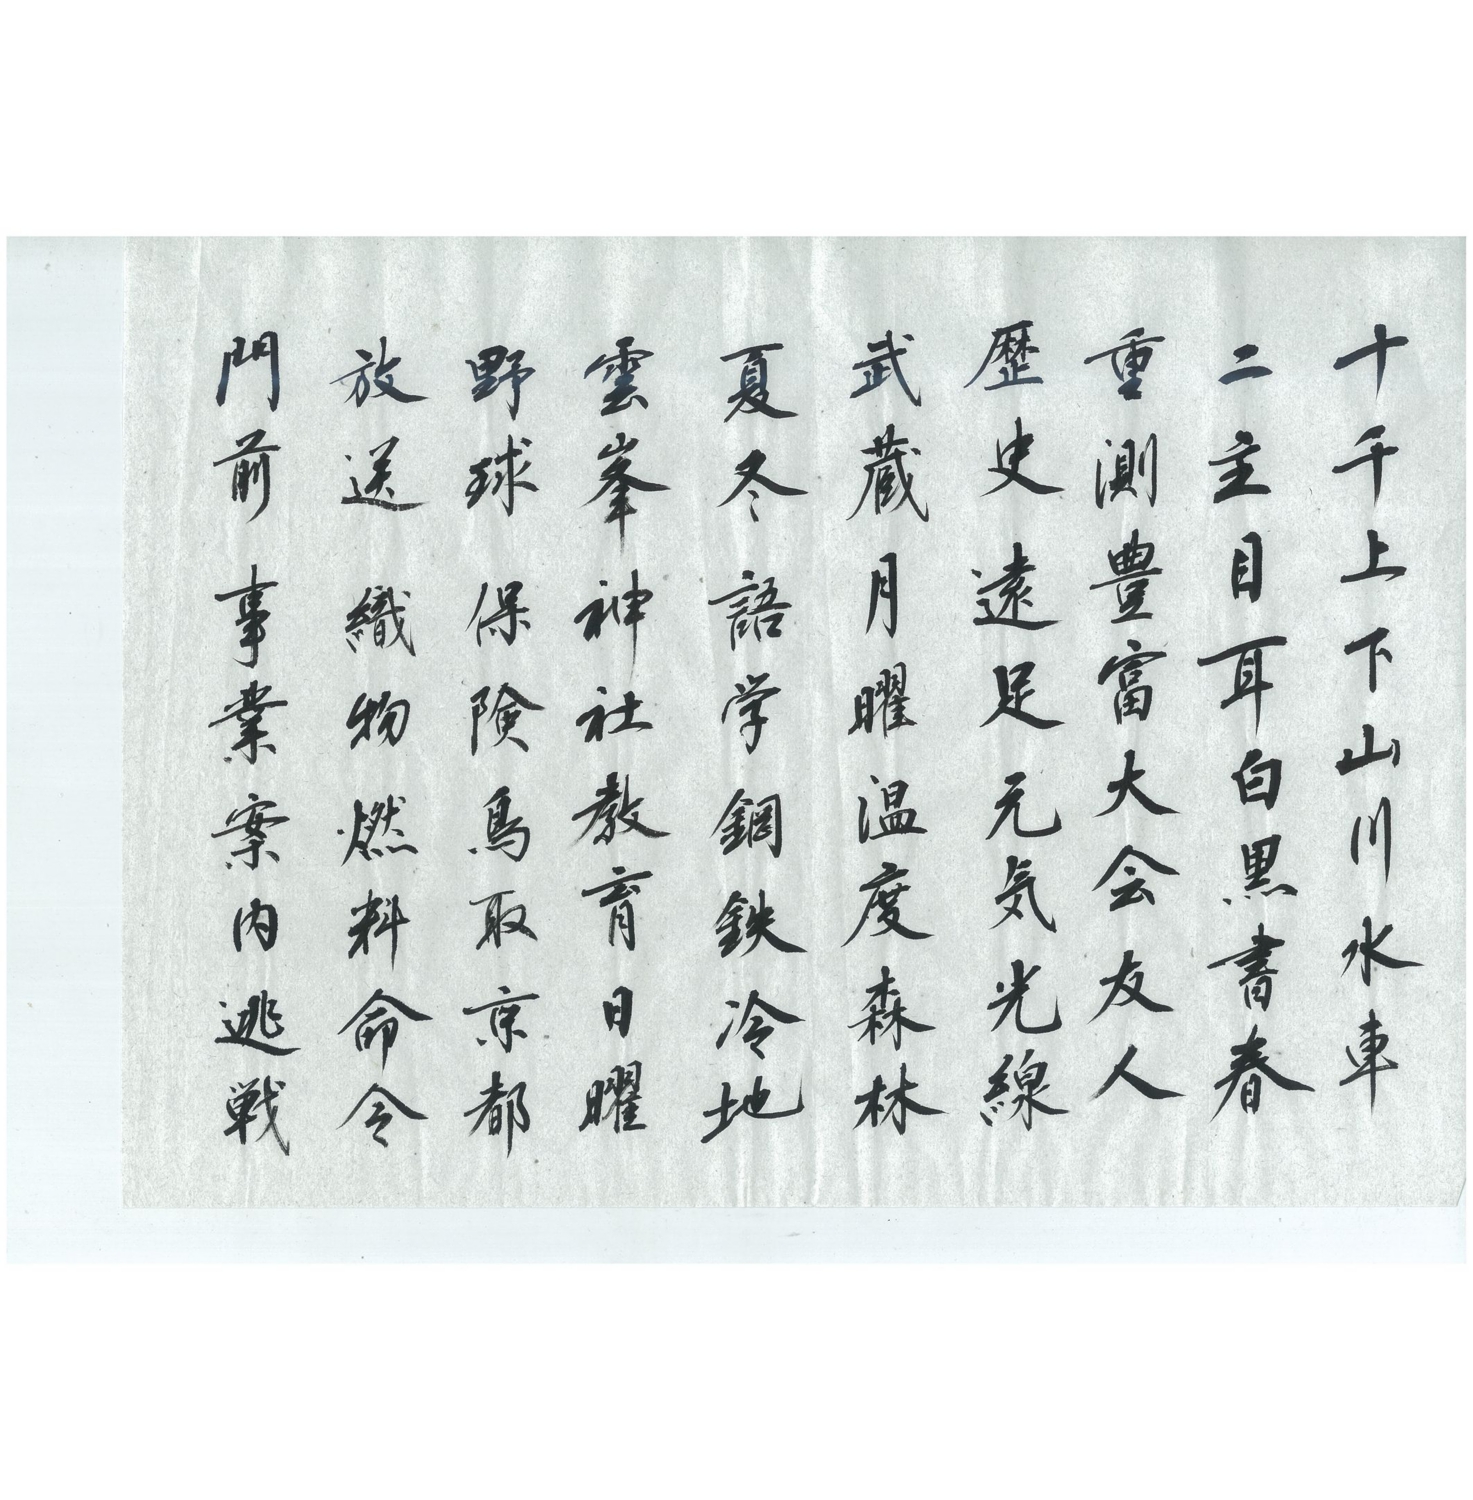 十千上下山川水車
二主目耳白黒書春
重測豊富大会友人
歴史遠足元気光線
武蔵月曜温度森林
夏冬語学鋼鉄冷地
雲峯神社教育日曜
野球保険鳥取京都
放送織物燃料命令
門前事業案内逃戦